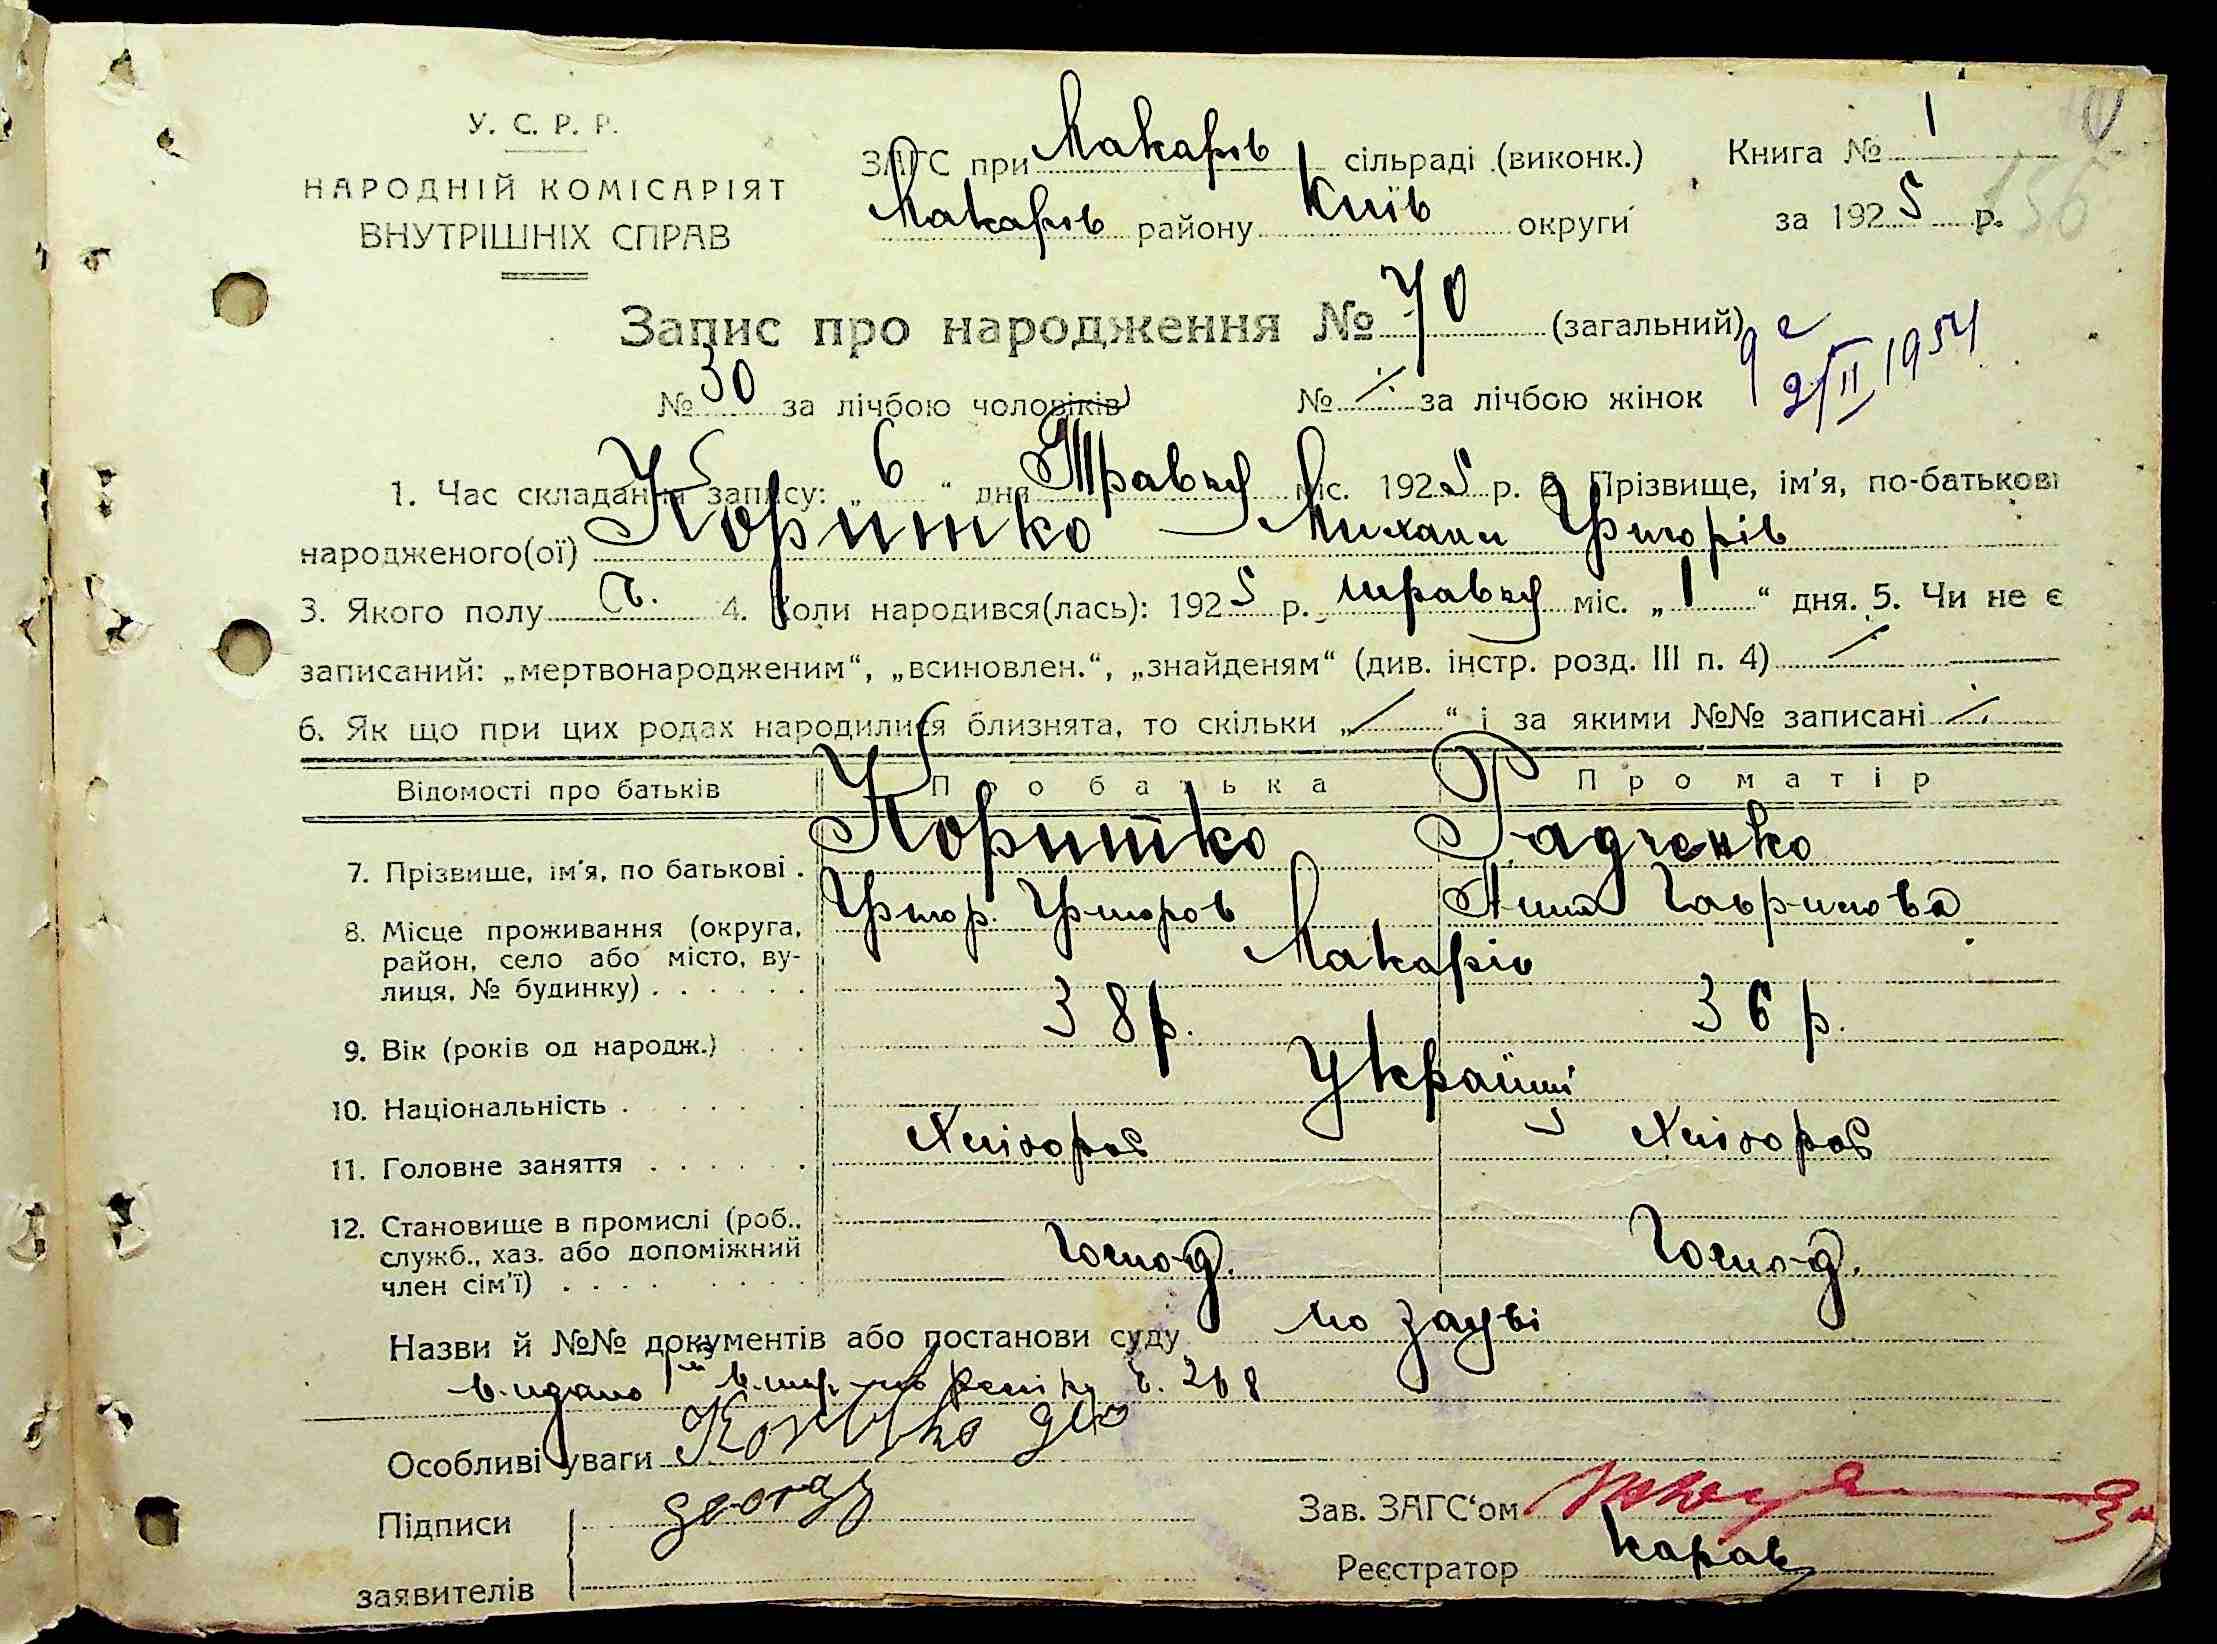 У. С. Р. Р.
НАРОДНІЙ КОМІСАРІЯТ
ВНУТРІШНІХ СПРАВ
ЗАГС при Макарів сільраді (виконк.)
Макарів району Київ округи
Книга № 1
за 1925 р.
156
Запис про народження № 70 (загальний)
№ 30 за лічбою чоловіків № ∕. за лічбою жінок
2/II 1954
1. Час складання запису: „ 6 “ дня Травня міс. 1925 р. 2. Прізвище, ім'я, по-батькові
народженого(ої) Коритко Михайл Григорів
3. Якого полу Ч. 4. Коли народився(лась): 1925 р. травня міс. „ 1 “ дня. 5. Чи не є
записаний: „мертвонародженим“, „всиновлен.“, „знайденям“ (див. інстр. розд. III п. 4) ∕
6. Як що при цих родах народилися близнята, то скільки „ ∕ “ і за якими №№ записані ∕.
Відомості про батьків Про батька Про матір
7. Прізвище, ім'я, по батькові . Коритко Радченко
Григор. Григоров Анна Гаврилова
8. Місце проживання (округа,
район, село або місто, ву-
лиця, № будинку) . . . . . . Макарів
9. Вік (років од народж.) . . . 38 р. 36 р.
10. Національність . . . . . . Україн
11. Головне заняття . . . . . . Хлібороб Хлібороб
12. Становище в промислі (роб.,
служб., хаз. або допоміжний
член сім'ї) . . . . . . . . Господ. Господ.
Назви й №№ документів або постанови суду по заяві
видано
268
Особливі уваги
Підписи
заявителів
Зав. ЗАГС‘ом
Реєстратор